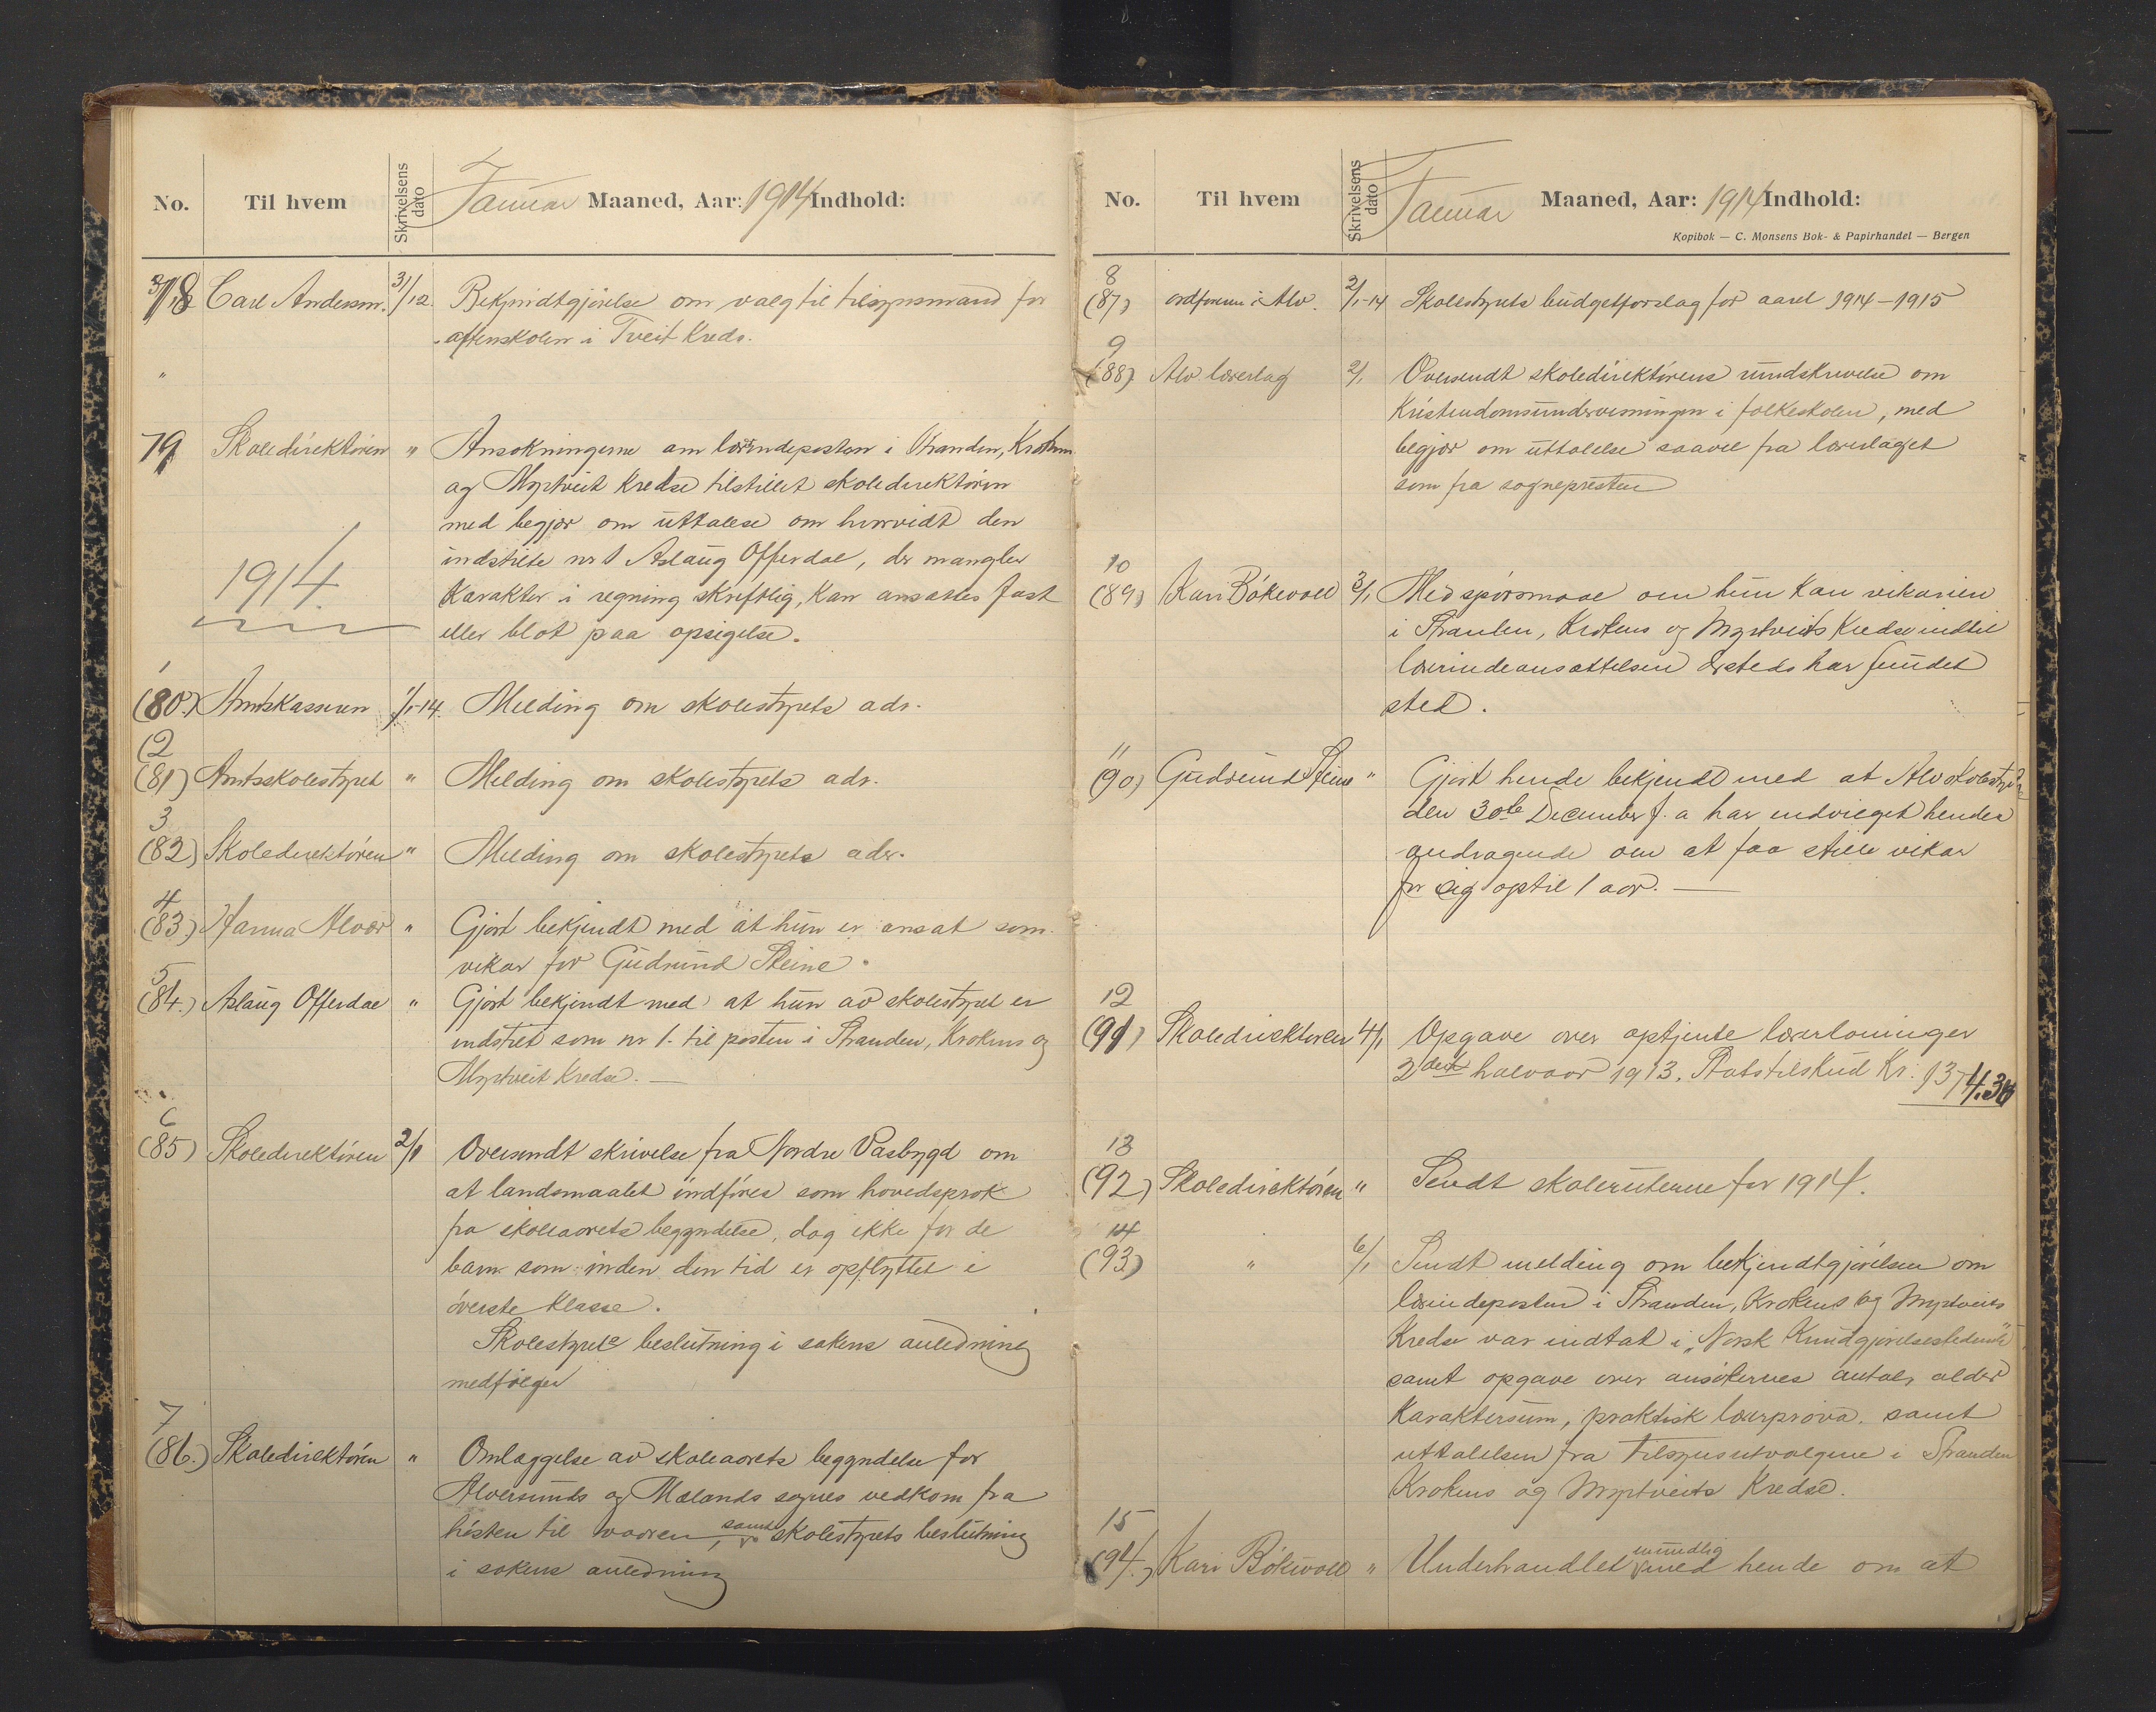 No. Til hvem Skrivelsens dato Januar Maaned, Aar: 1914 Indhold:
78 Carl Andersen. 31/12. Bekjendtgjørelse om valg til tilsynsmand for
aftenskolen i Tveit Kreds.
"
79 Skoledirektøren " Ansøkningerne om lærerindeposten i Stranden, Krokens
og Myrtveit Kredse tilstillet skoledirektøren
med begjær om uttalese om hvorvidt den
indstilte nr 1 Aslaug Offerdal, der mangler
Karakter i regning skriftlig, kan ansættes fast
eller blot paa opsigelse.
1914.
1
(80.) Amtskassereren 1/1-14. Melding om skolestyrets adr.
(2
(81) Amtsskolestyret " Melding om skolestyrets adr.
3
(82) Skoledirektøren " Melding om skolestyrets adr.
4
(83) Hanna Alvær " Gjort bekjendt med at hun er ansat som
vikar for Gudrund Steine.
5
(84.) Aslaug Offerdal " Gjort bekjendt med at hun av skolestyret er
indstilet som nr 1. til posten i Stranden, Krokens og
Myrtveit Kredse. —
6
(85) Skoledirektøren 2/1 Oversendt skrivelse fra Nordre Vasbygd om
at landsmaalet indføres som hovedsprok
fra skoleaarets begyndelse, dog ikke for de
barn som inden den tid er opflyttet i
øverste Klasse.
Skolestyrets beslutning i sakens anledning
medfølger
7
(86.) Skoledirektøren " Omlæggelse av skoleaarets begyndelse for
Alversunds og Mælands sognes vedkom. fra
høsten til vaaren, samt skolestyrets beslutning
i sakens anledning
No. Til hvem Skrivelsens dato Januar Maaned, Aar: 1914 Indhold:
Kopibok — C. Monsens Bok- & Papirhandel — Bergen
8
(87) ordføreren i Alv. 2/1-14 Skolestyrets budgetforslag for aaret 1914–1915
9
(88) Alv. lærerlag 2/1 Oversendt skoledirektørens rundskrivelse om
Kristendomsundervisningen i folkeskolen, med
begjær om uttalelse saavel fra lærerlaget
som fra sognepresten
10
(89) Kari Bókevoll 3/1 Med spørsmaal om hun kan vikariere
i Stranden, Krokens og Myrtveits Kredse indtil
lærerindeansættelsen dersteds har fundet
sted.
11
(90) Gudrund Steine " Gjort hende bekjendt med at Alv. skolestyre
den 30te December f. a har indvilget hendes
andragende om at faa stille vikar
for sig optil 1 aar. —
12
(91) Skoledirektøren 4/1 Opgave over optjente lærerlønninger
2det halvaar 1913. Statstilskud Kr. 1374.36
13
(92) Skoledirektøren " Sendt skoleruterne for 1914.
14
(93) " 6/1 Sendt melding om bekjendtgjørelsen om
lærerindeposten i Stranden, Krokens og Myrtveits
Kredse var indtat i „Norsk Kundgjørelsestidende"
samt opgave over ansøkernes antal, alder
Karaktersum, praktisk lærerprøve. samt
uttalelsen fra tilsynsutvalgene i Stranden
Krokens og Myrtveits Kredse.
15
(94.) Kari Bókevoll " Underhandlet mundlig med hende om at